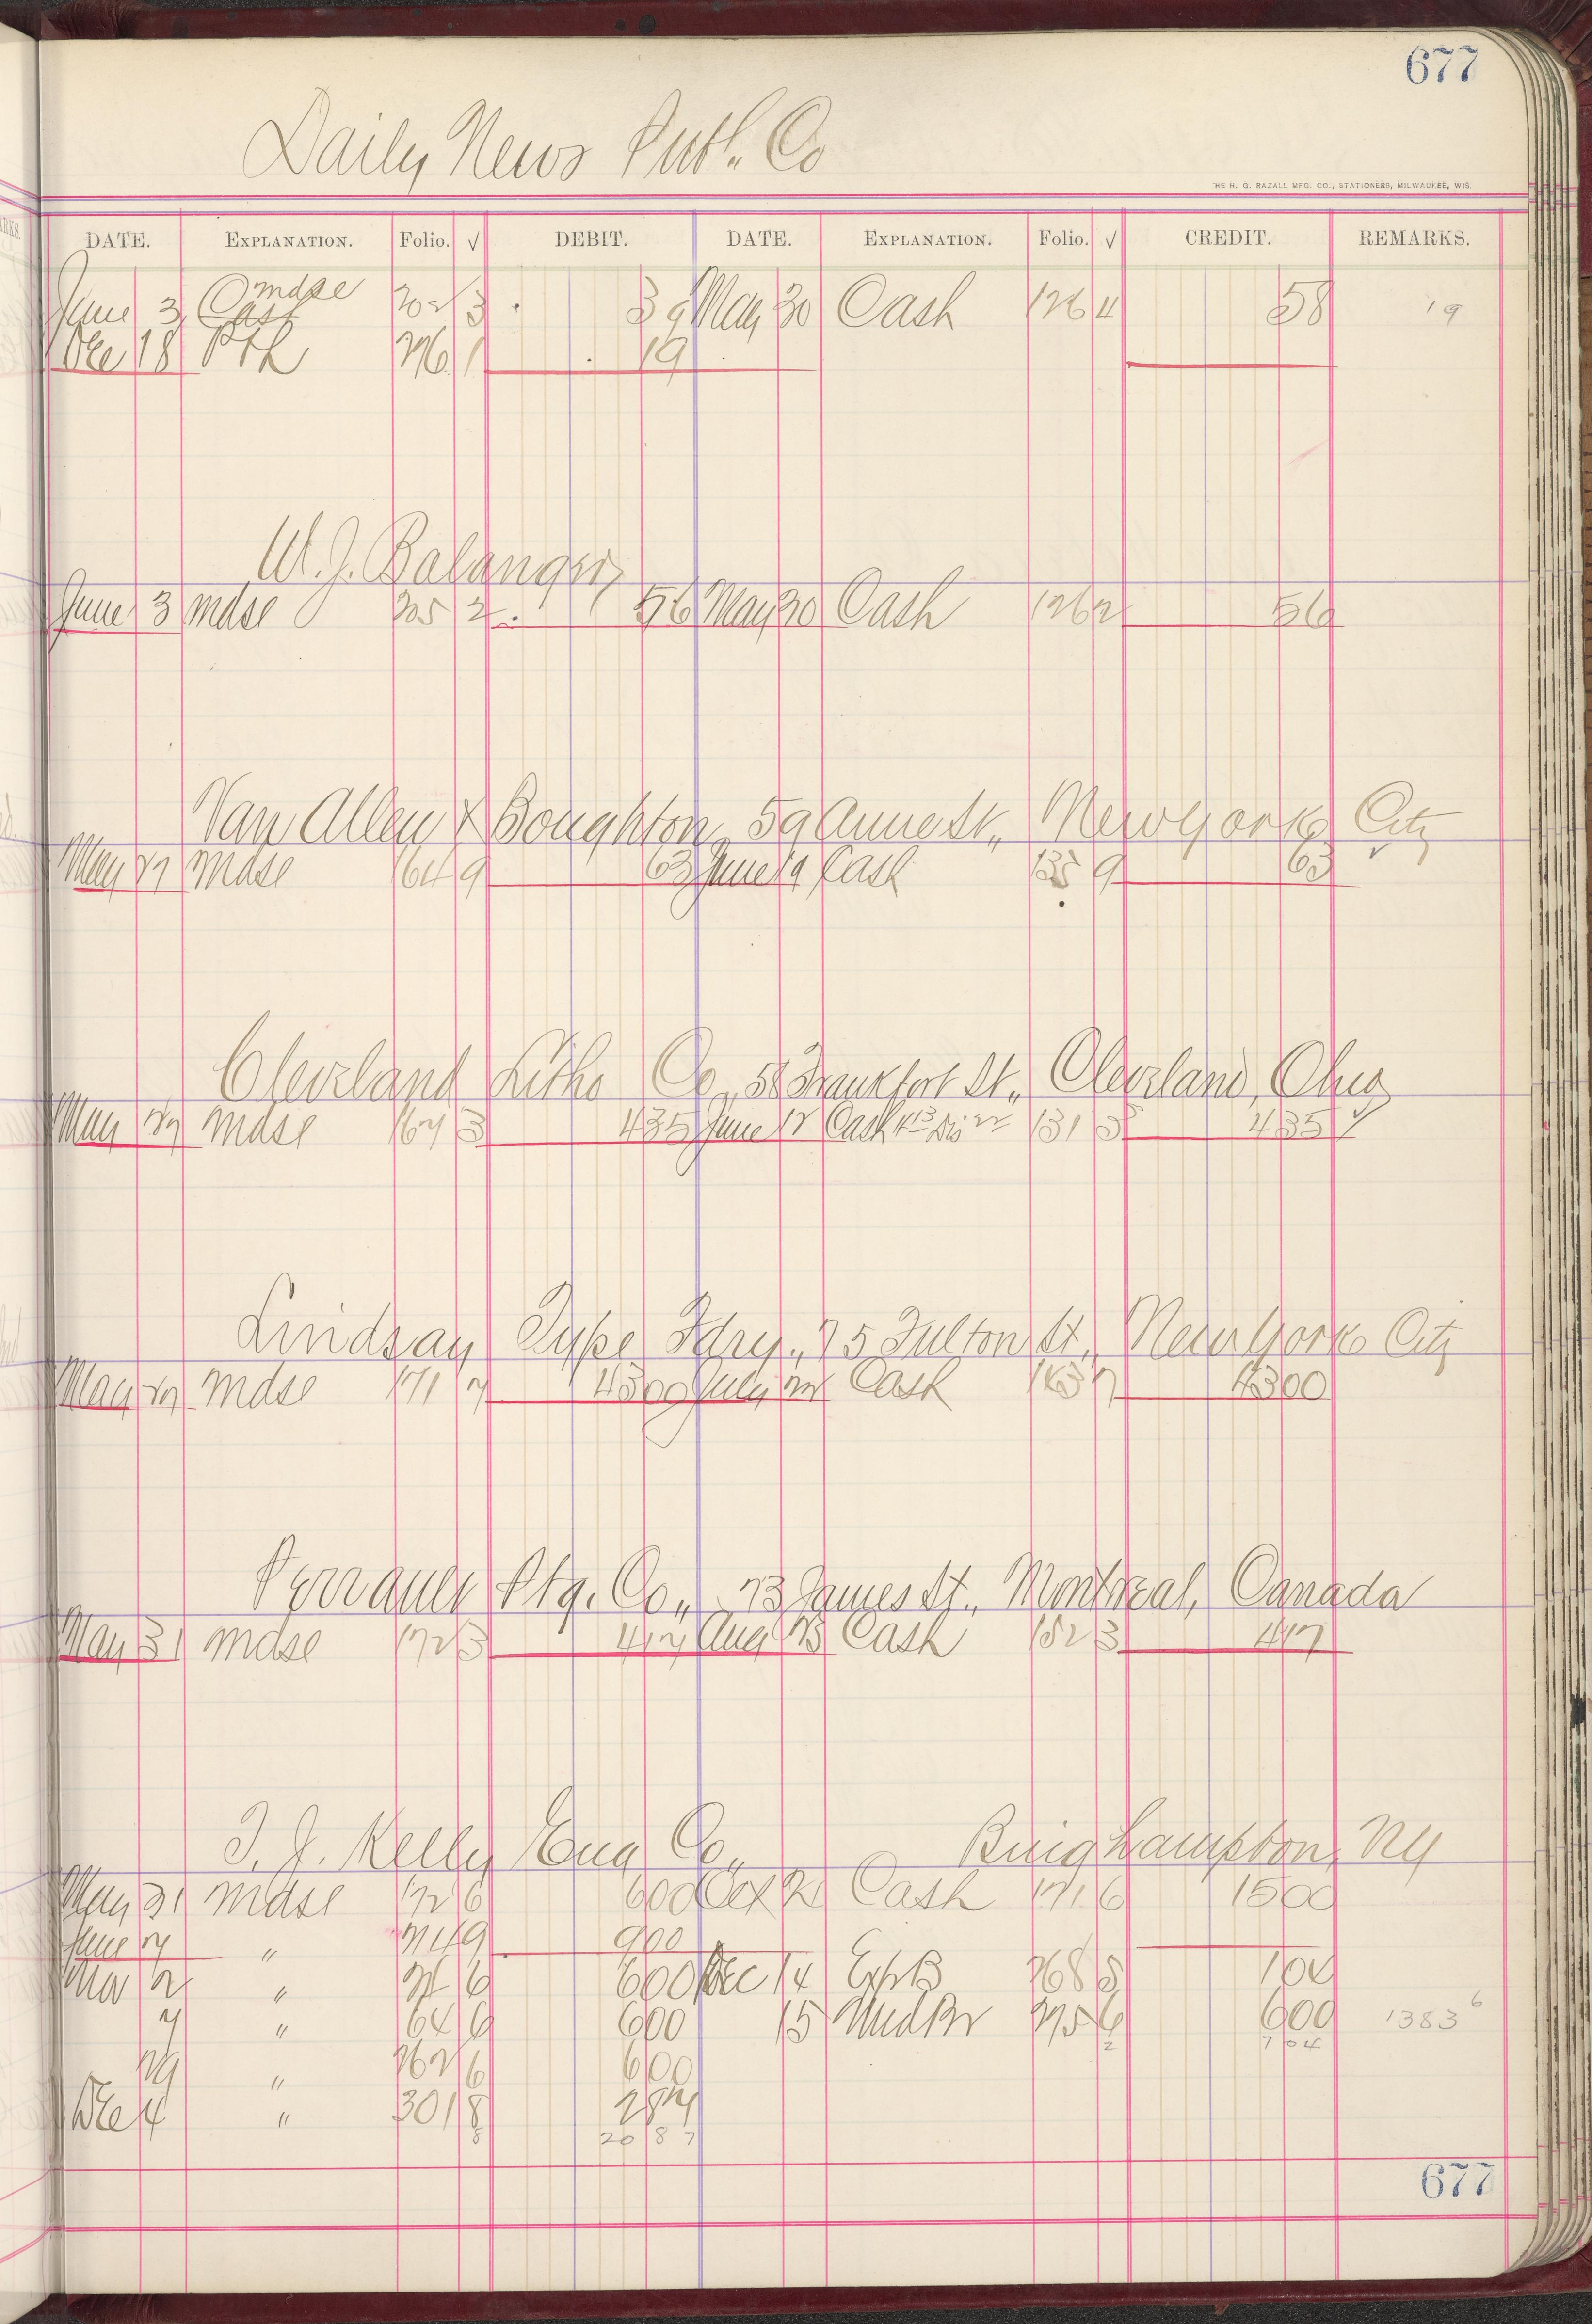 677
Daily News Publ. Co
THE H. G. RAZALL MFG. CO., STATIONERS, MILWAUKEE, WIS.
DATE. EXPLANATION. Folio. √ DEBIT. DATE. EXPLANATION. Folio. √ CREDIT. REMARKS.
June 3 mdse 202 3 39 May 30 Cash 126 4 58 19
Dec 18 1 19
W. J. Balanger
June 3 mdse 205 2 56 May 30 Cash 126 2 56
Van Allen & Boughton, 59 Anne St., New York City
May 27 mdse 164 9 63 June 19 Cash 135 9 63
Cleveland Litho Co., 58 Frankfort St., Cleveland, Ohio
May 27 mdse 167 3 435 June 12 Cash 413 Dis 22 131 5 435
Lindsay Type Fdry., 75 Fulton St., New York City
May 29 mdse 171 7 4500 July Cash 163 7 4500
Perrault Ptg. Co., 73 James St., Montreal, Canada
May 31 mdse 172 3 417 Aug 23 Cash 182 3 417
T. J. Kelly Eng Co., Binghampton, NY
May 31 mdse 172 6 600 Oct 2 Cash 171 6 1500
June 7 " 214 9 900
Nov 2 " 6 600 Dec 14 268 8 104
7 " 64 6 600 15 295 6 600 1383 6
2 704
29 " 262 6 600
Dec 4 " 301 8 287
8 2087
677